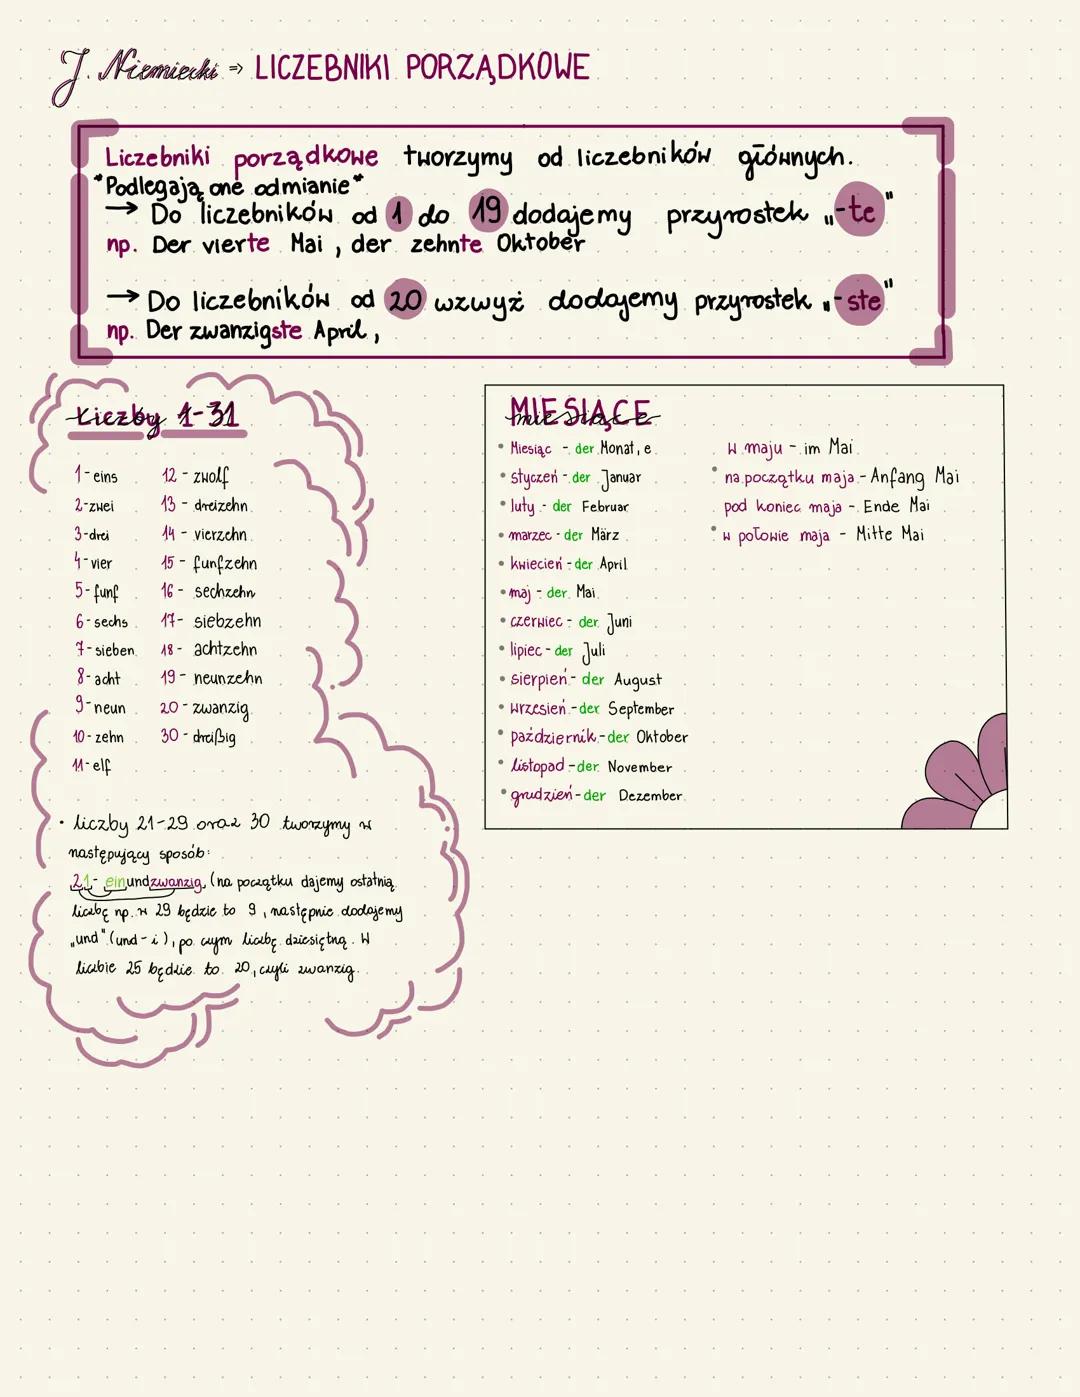 J. Niemiecki ⇒ LICZEBNIKI PORZĄDKOWE
Liczebniki porządkowe tworzymy od liczebników głównych.
*Podlegają one odmianie*
→ Do liczebników od 1 do 19 dodajemy przyrostek „-te"
np. Der vierte Mai, der zehnte Oktober
→ Do liczebników od 20 wzwyż dodajemy przyrostek „-ste"
np. Der zwanzigste April,
Liczby 1-31
1 - eins
2 - zwei
3 - drei
4 - vier
5 - funf
6 - sechs
7 - sieben
8 - acht
9 - neun
10 - zehn
11 - elf
12 - zwolf
13 - dreizehn
14 - vierzehn
15 - funfzehn
16 - sechzehn
17 - siebzehn
18 - achtzehn
19 - neunzehn
20 - zwanzig
30 - dreißig
• liczby 21-29 oraz 30 tworzymy w
następujący sposób:
21 - einundzwanzig, (na początku dajemy ostatnią
liczbę np. w 29 będzie to 9, następnie dodajemy
„und" (und - i), po czym liczbę dziesiętną. W
liczbie 25 będzie to 20, czyli zwanzig.
MIESIĄCE
miesiące
• Miesiąc - der Monat, e
• styczeń - der Januar
• luty - der Februar
• marzec - der März
• kwiecień - der April
• maj - der Mai
• czerwiec - der Juni
• lipiec - der Juli
• sierpień - der August
• wrzesień - der September
• październik - der Oktober
• listopad - der November
• grudzień - der Dezember
w maju - im Mai
• na początku maja - Anfang Mai
pod koniec maja - Ende Mai
• w połowie maja - Mitte Mai